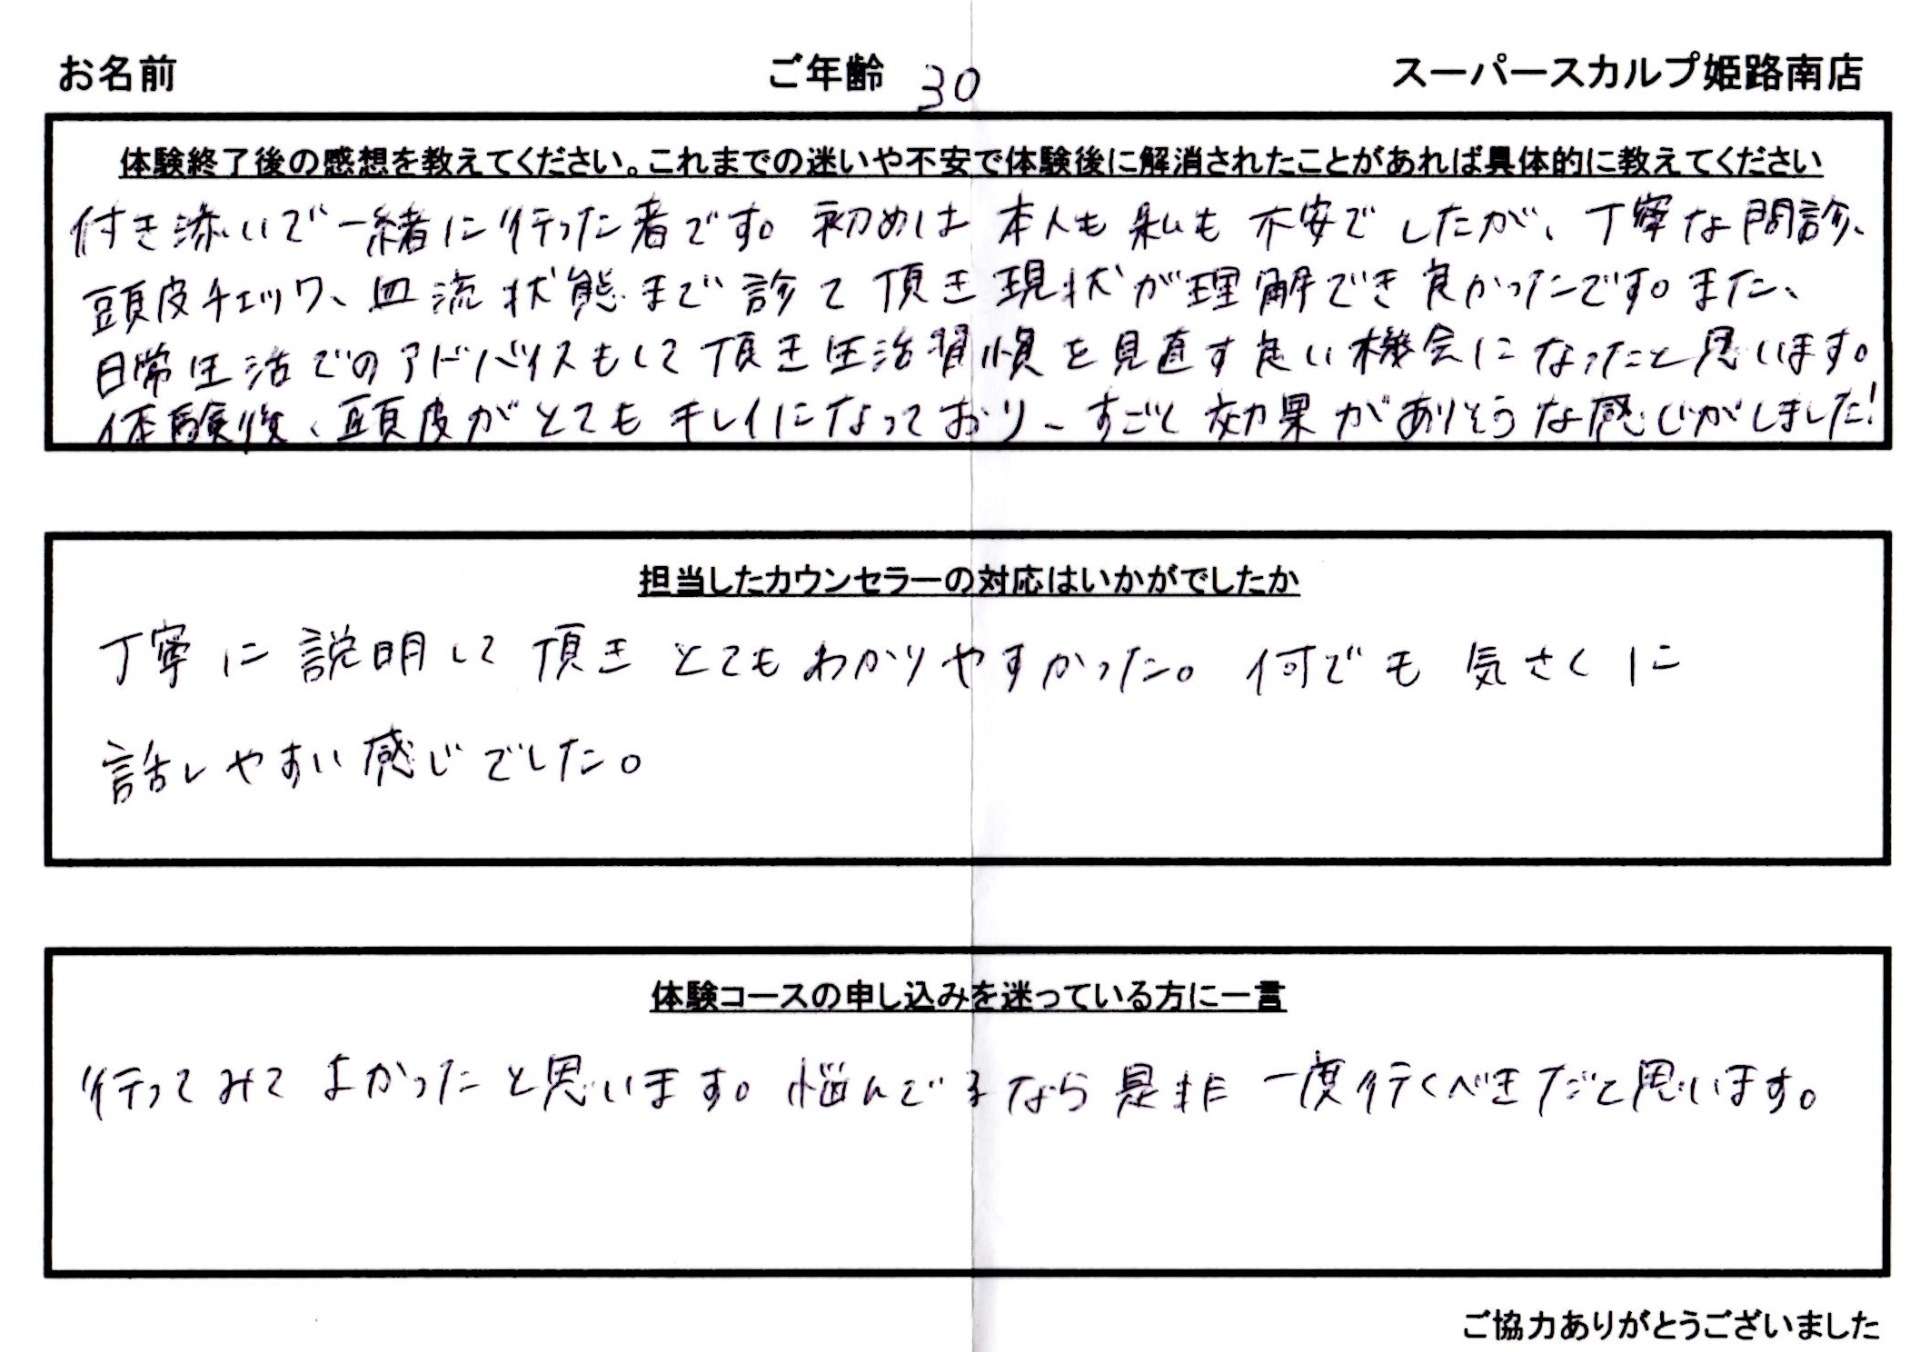 お名前 ご年齢 30 スーパースカルプ姫路南店
体験終了後の感想を教えてください。これまでの迷いや不安で体験後に解消されたことがあれば具体的に教えてください
付き添いで一緒に行った者です。初めは本人も私も不安でしたが、丁寧な問診、
頭皮チェック、血流状態まで診て頂き現状が理解でき良かったです。また、
日常生活でのアドバイスもして頂き生活習慣を見直す良い機会になったと思います。
体験後、頭皮がとてもキレイになっており、すごく効果がありそうな感じがしました!
担当したカウンセラーの対応はいかがでしたか
丁寧に説明して頂きとてもわかりやすかった。何でも気さくに
話しやすい感じでした。
体験コースの申し込みを迷っている方に一言
行ってみてよかったと思います。悩んでるなら是非一度行くべきだと思います。
ご協力ありがとうございました